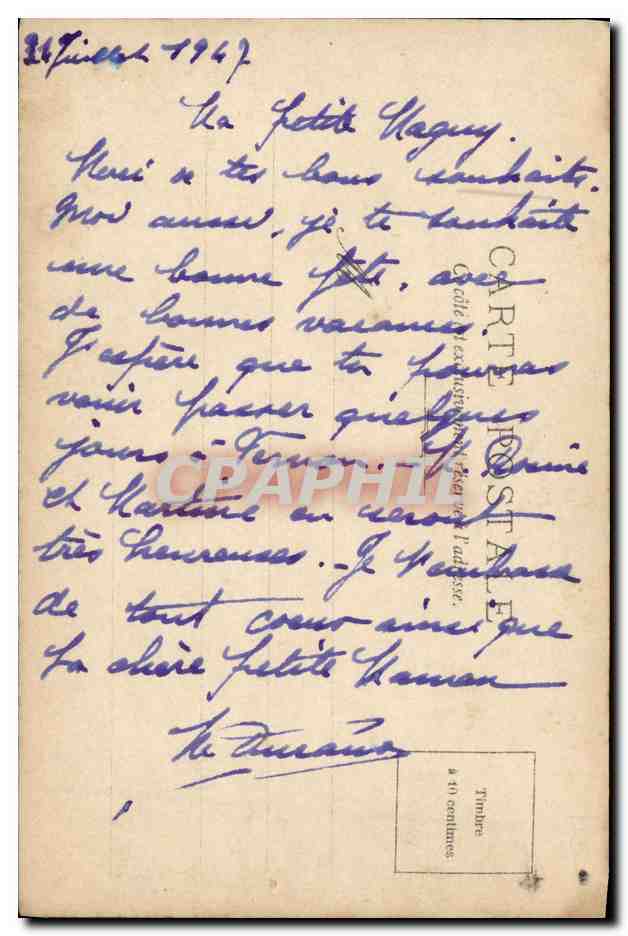 Juillet 1947
Ma petite Maguy.
Merci de tes bons souhaits.
Moi aussi, je te souhaite
une bonne fête, avec
de bonnes vacances.
J'espère que tu pourras
venir passer quelques
jours à Vernon.
et Martine en seront
très heureuses. _ Je t'embrasse
de tout coeur ainsi que
ta chère petite Maman
CARTE POSTALE
Ce côté est exclusivement réservé à l'adresse.
Timbre
à 10 centimes
CPAPHIL